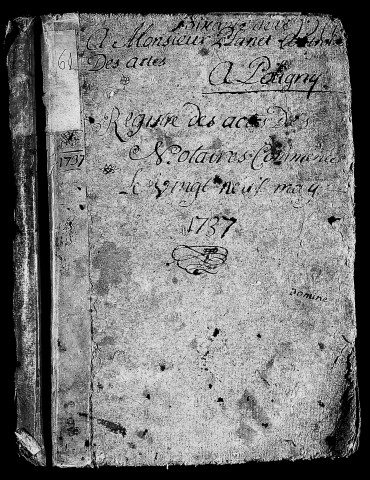 A Monsieur
Des actes
A Poligny
Registre des actes des
Notaires Commencé
le vingt neuf may
1737
61
1737
Domine